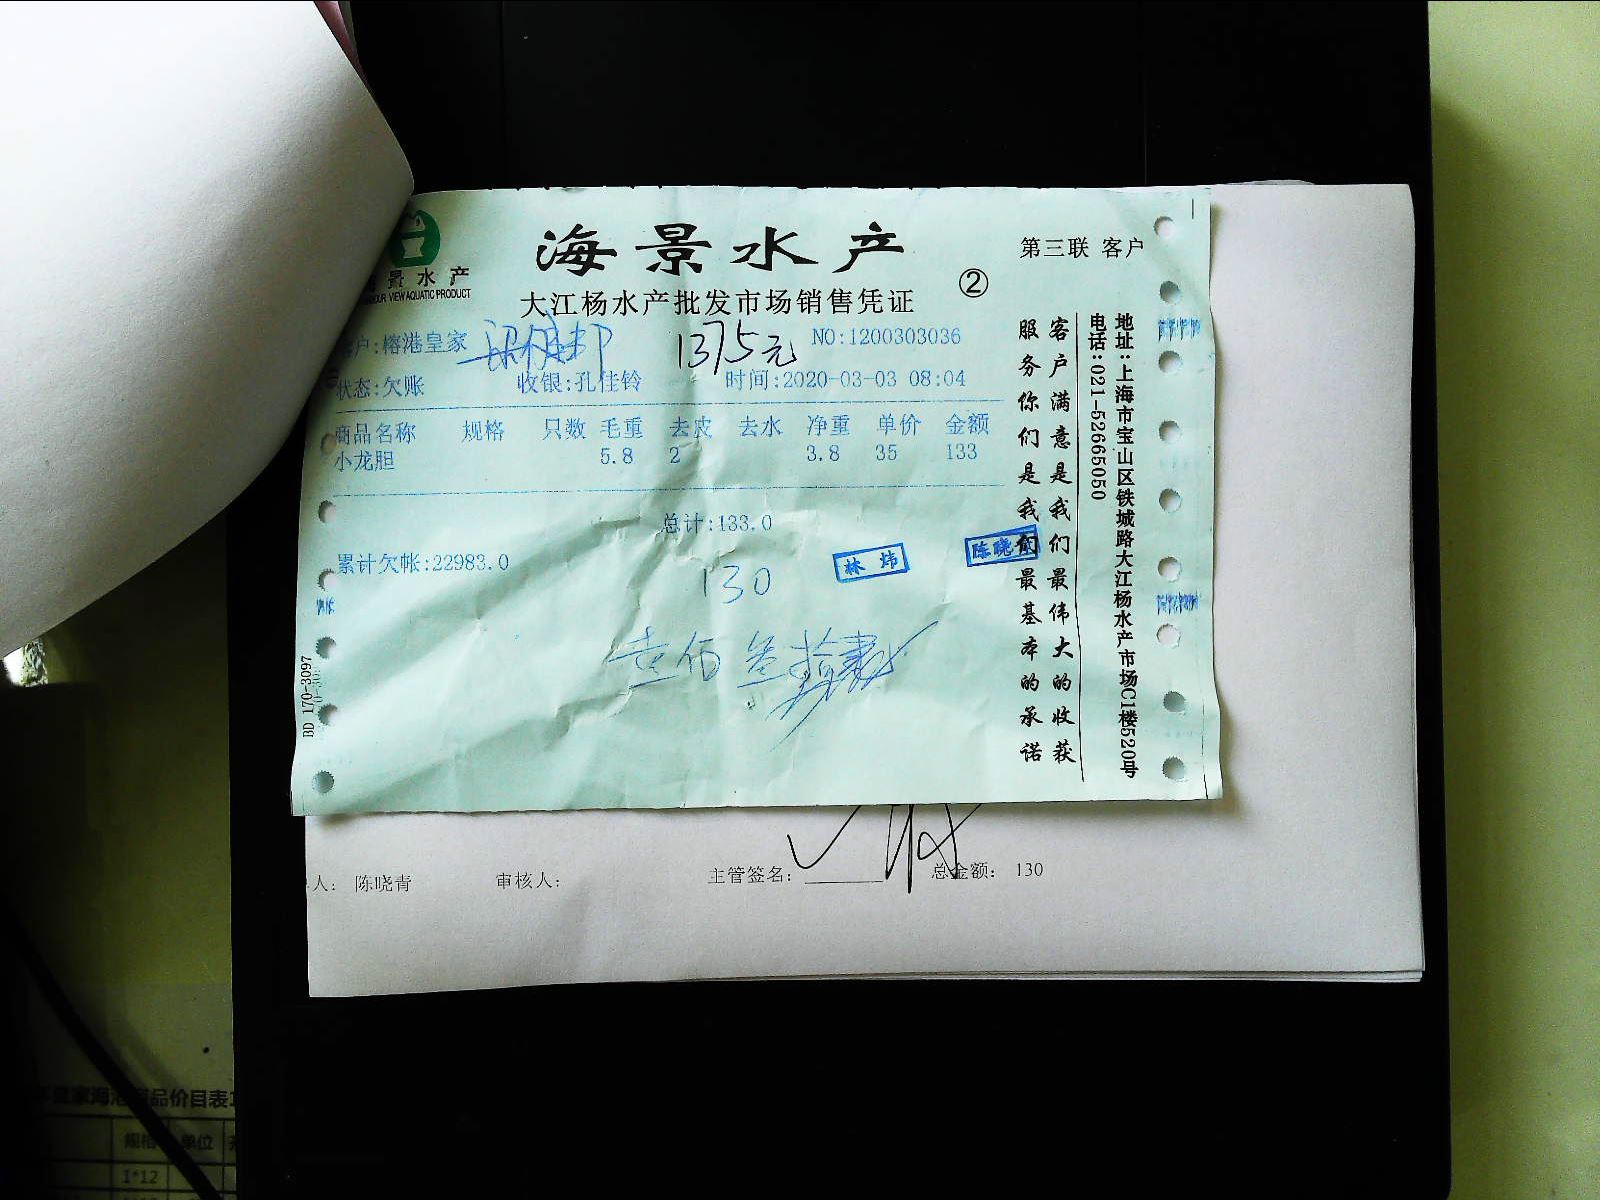 景水产
VIEW AQUATIC PRODUCT
海景水产
大江杨水产批发市场销售凭证
②
第三联 客户
户:榕港皇家
1375元
NO:1200303036
状态:欠账 收银:孔佳铃 时间:2020-03-03 08:04
商品名称 规格 只数 毛重 去皮 去水 净重 单价 金额
小龙胆 5.8 2 3.8 35 133
总计:133.0
累计欠帐:22983.0
130
林炜
陈晓
壹佰叁拾
客户满意是我们最伟大的收获
服务你们是我们最基本的承诺
地址：上海市宝山区铁城路大江杨水产市场C1楼520号
电话：021-52665050
BD 170-3097
人： 陈晓青 审核人： 主管签名： 总金额： 130
家海港 品价目表
规格 单位
1*12